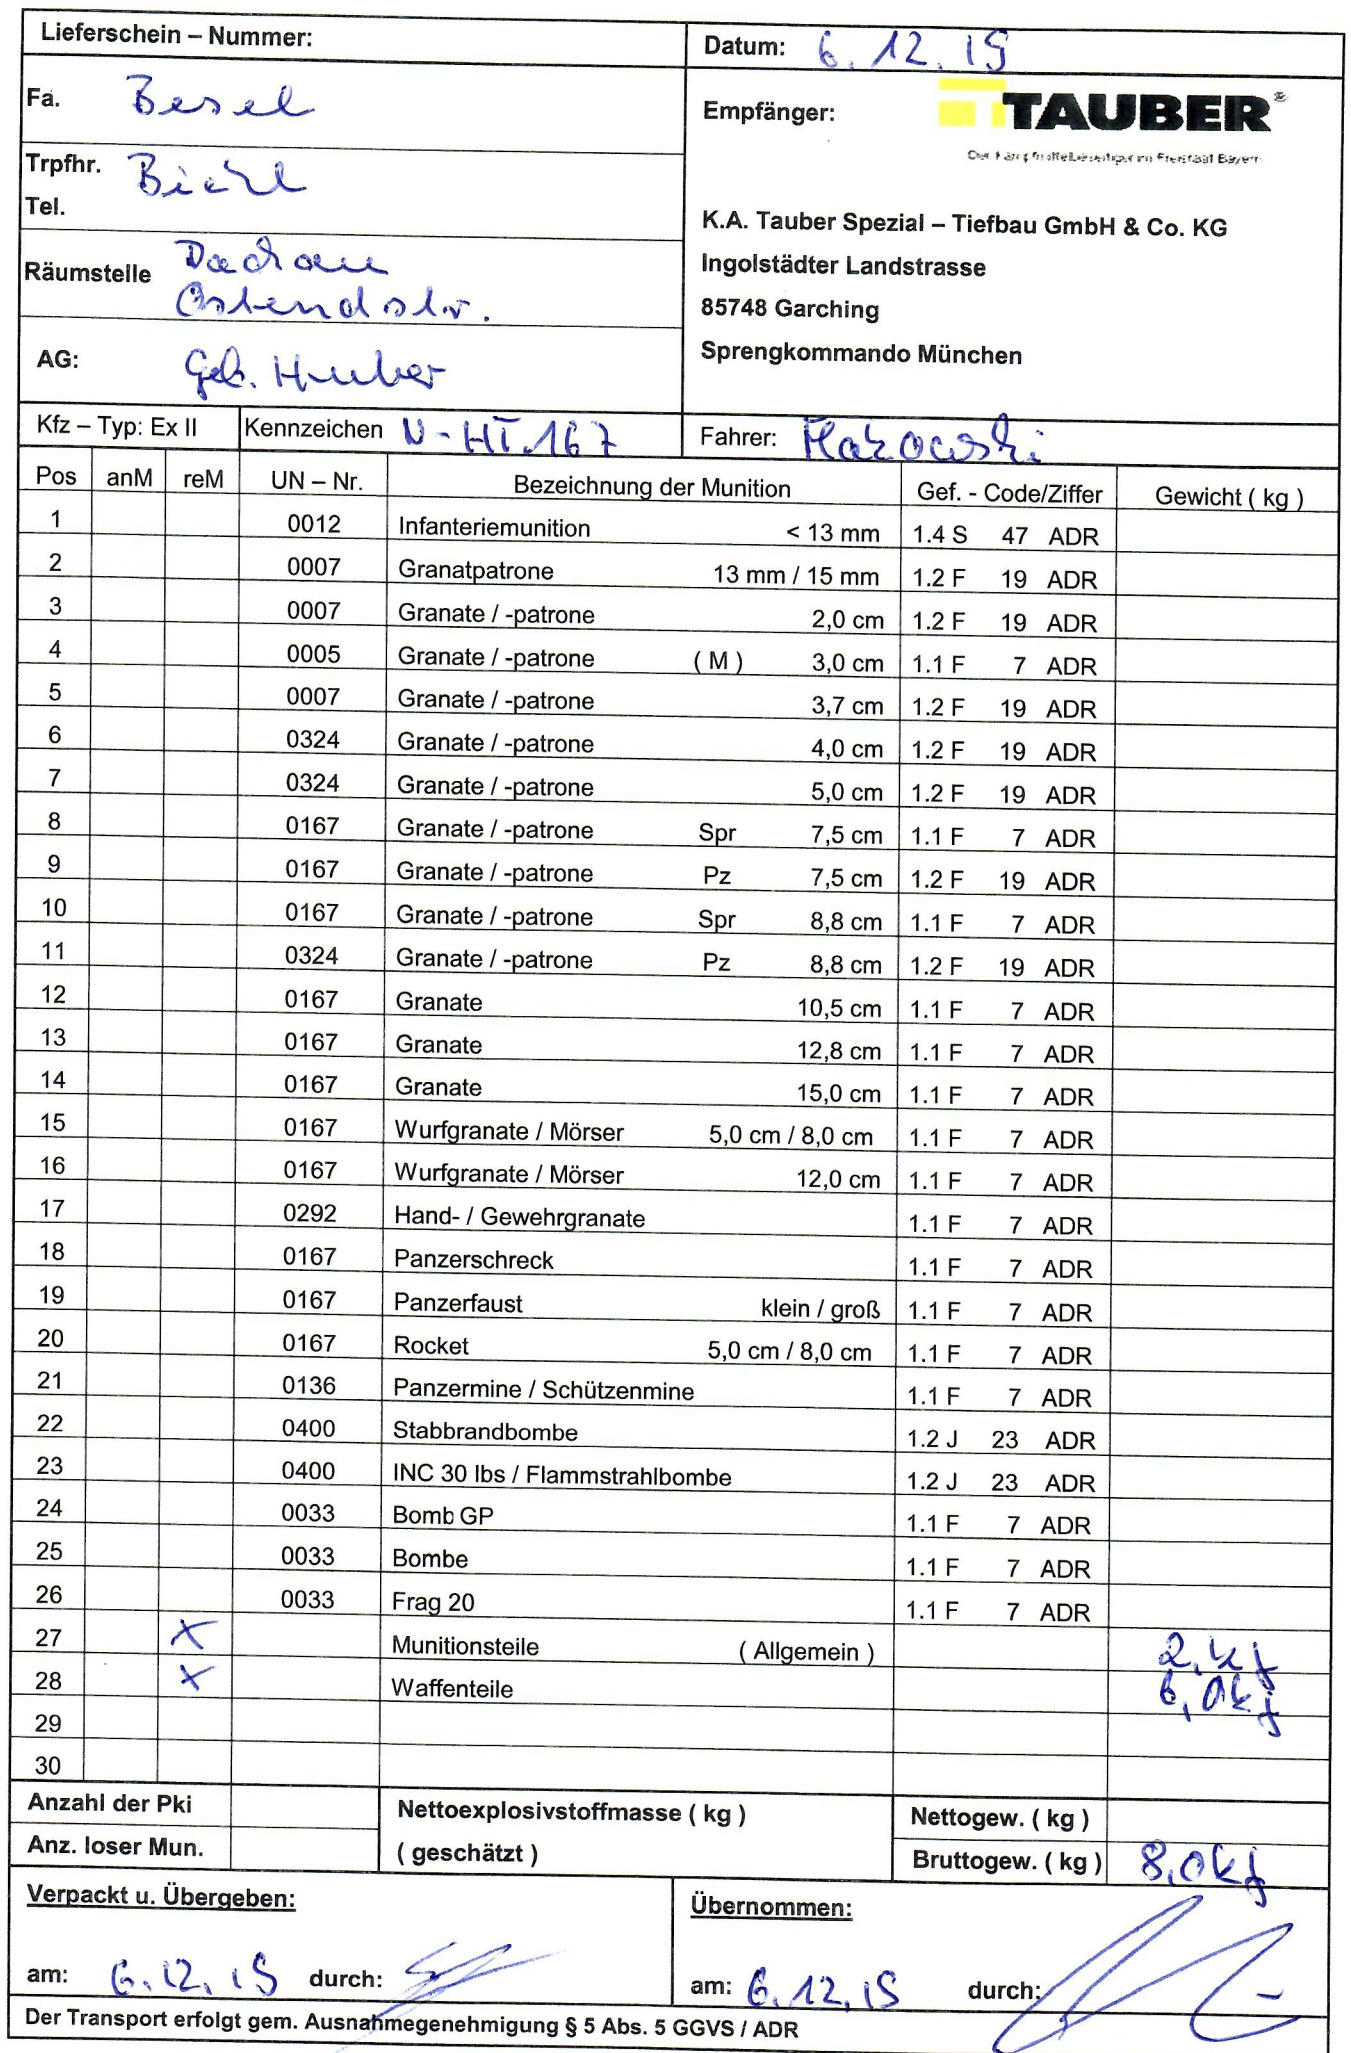 Lieferschein – Nummer:
Datum: 6.12.19
Fa. Besel
Empfänger: TAUBER®
Der Kampfmittelbeseitiger im Freistaat Bayern
Trpfhr.
Tel.
K.A. Tauber Spezial – Tiefbau GmbH & Co. KG
Räumstelle Dachau
Ostendstr.
Ingolstädter Landstrasse
85748 Garching
AG: Geb. Huber
Sprengkommando München
Kfz – Typ: Ex II Kennzeichen N-HT.167 Fahrer: Makowski
Pos anM reM UN – Nr. Bezeichnung der Munition Gef. - Code/Ziffer Gewicht ( kg )
1 0012 Infanteriemunition < 13 mm 1.4 S 47 ADR
2 0007 Granatpatrone 13 mm / 15 mm 1.2 F 19 ADR
3 0007 Granate / -patrone 2,0 cm 1.2 F 19 ADR
4 0005 Granate / -patrone ( M ) 3,0 cm 1.1 F 7 ADR
5 0007 Granate / -patrone 3,7 cm 1.2 F 19 ADR
6 0324 Granate / -patrone 4,0 cm 1.2 F 19 ADR
7 0324 Granate / -patrone 5,0 cm 1.2 F 19 ADR
8 0167 Granate / -patrone Spr 7,5 cm 1.1 F 7 ADR
9 0167 Granate / -patrone Pz 7,5 cm 1.2 F 19 ADR
10 0167 Granate / -patrone Spr 8,8 cm 1.1 F 7 ADR
11 0324 Granate / -patrone Pz 8,8 cm 1.2 F 19 ADR
12 0167 Granate 10,5 cm 1.1 F 7 ADR
13 0167 Granate 12,8 cm 1.1 F 7 ADR
14 0167 Granate 15,0 cm 1.1 F 7 ADR
15 0167 Wurfgranate / Mörser 5,0 cm / 8,0 cm 1.1 F 7 ADR
16 0167 Wurfgranate / Mörser 12,0 cm 1.1 F 7 ADR
17 0292 Hand- / Gewehrgranate 1.1 F 7 ADR
18 0167 Panzerschreck 1.1 F 7 ADR
19 0167 Panzerfaust klein / groß 1.1 F 7 ADR
20 0167 Rocket 5,0 cm / 8,0 cm 1.1 F 7 ADR
21 0136 Panzermine / Schützenmine 1.1 F 7 ADR
22 0400 Stabbrandbombe 1.2 J 23 ADR
23 0400 INC 30 lbs / Flammstrahlbombe 1.2 J 23 ADR
24 0033 Bomb GP 1.1 F 7 ADR
25 0033 Bombe 1.1 F 7 ADR
26 0033 Frag 20 1.1 F 7 ADR
27 X Munitionsteile ( Allgemein ) 2, kg
28 X Waffenteile 6,0kg
29
30
Anzahl der Pki Nettoexplosivstoffmasse ( kg ) Nettogew. ( kg )
Anz. loser Mun. ( geschätzt ) Bruttogew. ( kg ) 8,0kg
Verpackt u. Übergeben: Übernommen:
am: 6.12.19 durch: am: 6.12.19 durch:
Der Transport erfolgt gem. Ausnahmegenehmigung § 5 Abs. 5 GGVS / ADR